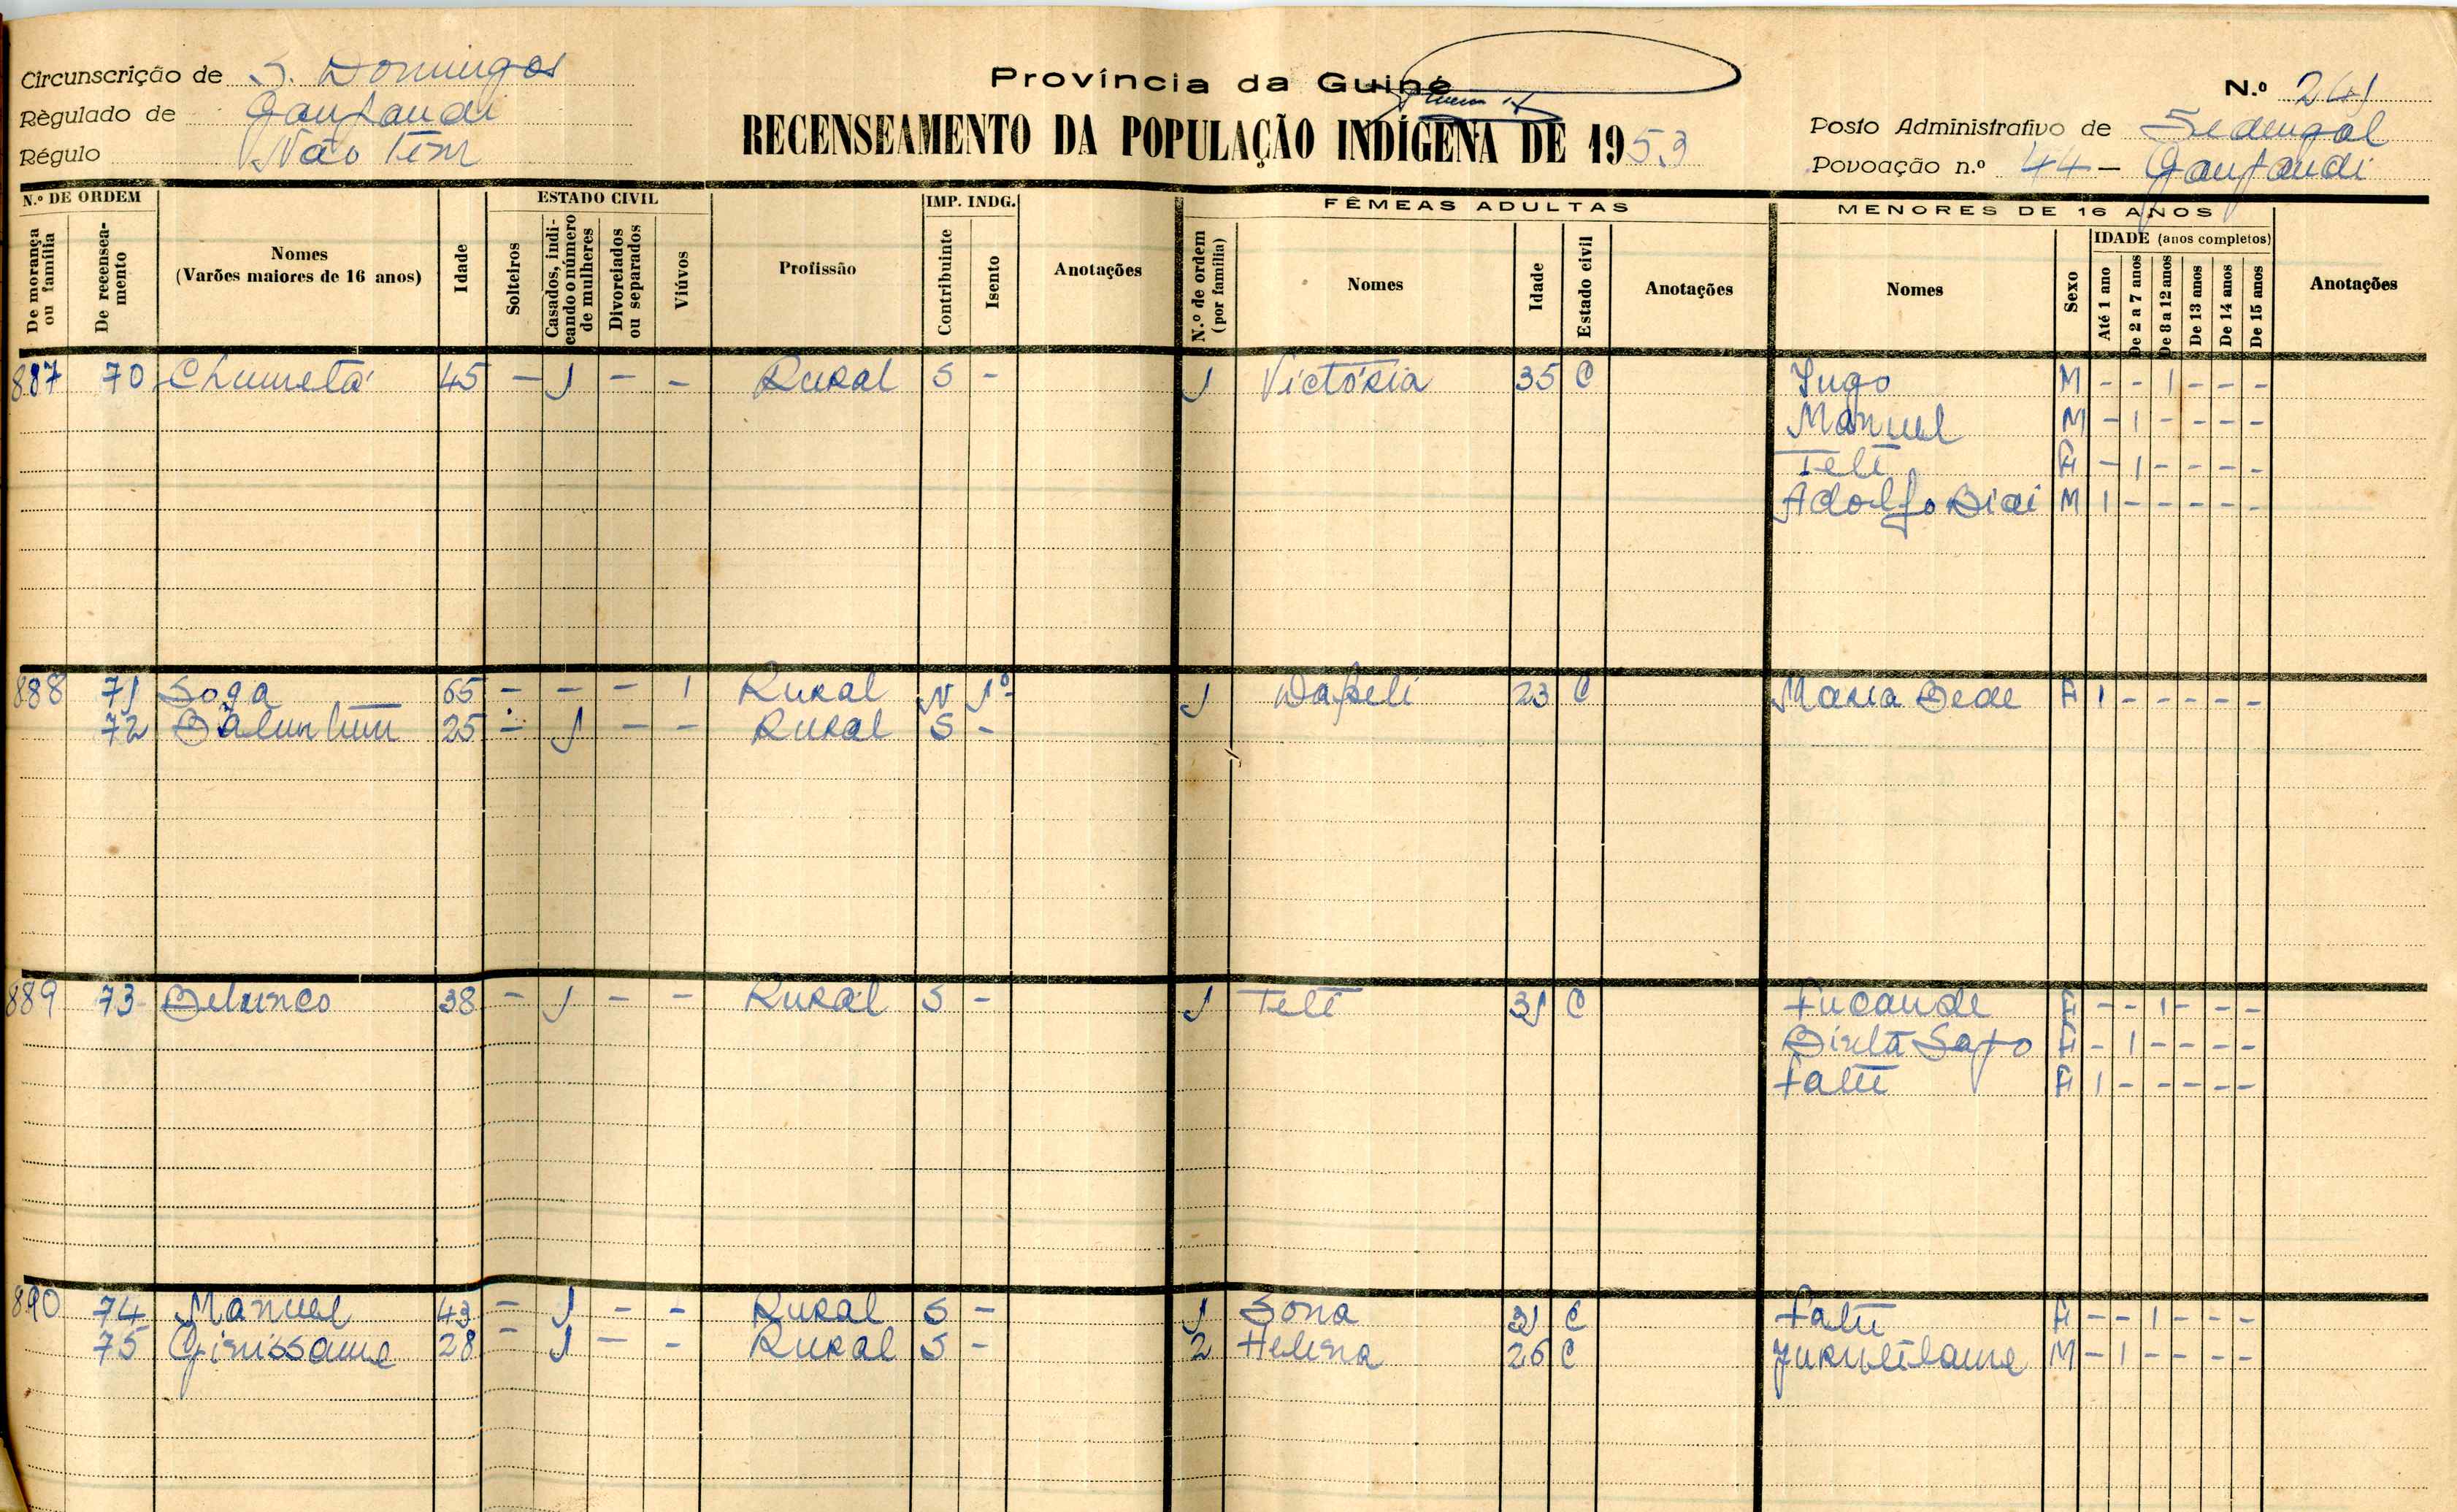 Circunscrição de S. Domingos
Règulado de
Régulo Não Tem
Província da Guiné
RECENSEAMENTO DA POPULAÇÃO INDÍGENA DE 1953
N.º 241
Posto Administrativo de Sedengal
Povoação n.º 44 –
N.º DE ORDEM
De morança ou família
De recenseamento
Nomes
(Varões maiores de 16 anos)
Idade
ESTADO CIVIL
Solteiros
Casados, indicando o número de mulheres
Divorciados ou separados
Viúvos
Profissão
IMP. INDG.
Contribuinte
Isento
Anotações
FÊMEAS ADULTAS
N.º de ordem (por família)
Nomes
Idade
Estado civil
Anotações
MENORES DE 16 ANOS
Nomes
Sexo
IDADE (anos completos)
Até 1 ano
De 2 a 7 anos
De 8 a 12 anos
De 13 anos
De 14 anos
De 15 anos
Anotações
887 70 Chumetá 45 – 1 – – Rural S – 1 Victória 35 C Jugo M – – 1 – – –
Manuel M – 1 – – – –
Teté F – 1 – – – –
Adolfo Biai M 1 – – – – –
888 71 Soga 65 – – – 1 Rural N 1º 1 23 C Maria Bede F 1 – – – – –
72 25 – 1 – – Rural S –
889 73 Belunco 38 – 1 – – Rural S – 1 Teté 31 C Fucande F – – 1 – – –
Binta Safo F – 1 – – – –
Fatú F 1 – – – – –
890 74 Manuel 43 – 1 – – Rural S – 1 Sona 31 C Fatú F – – 1 – – –
75 Ginissame 28 – 1 – – Rural S – 2 Helena 26 C M – 1 – – – –